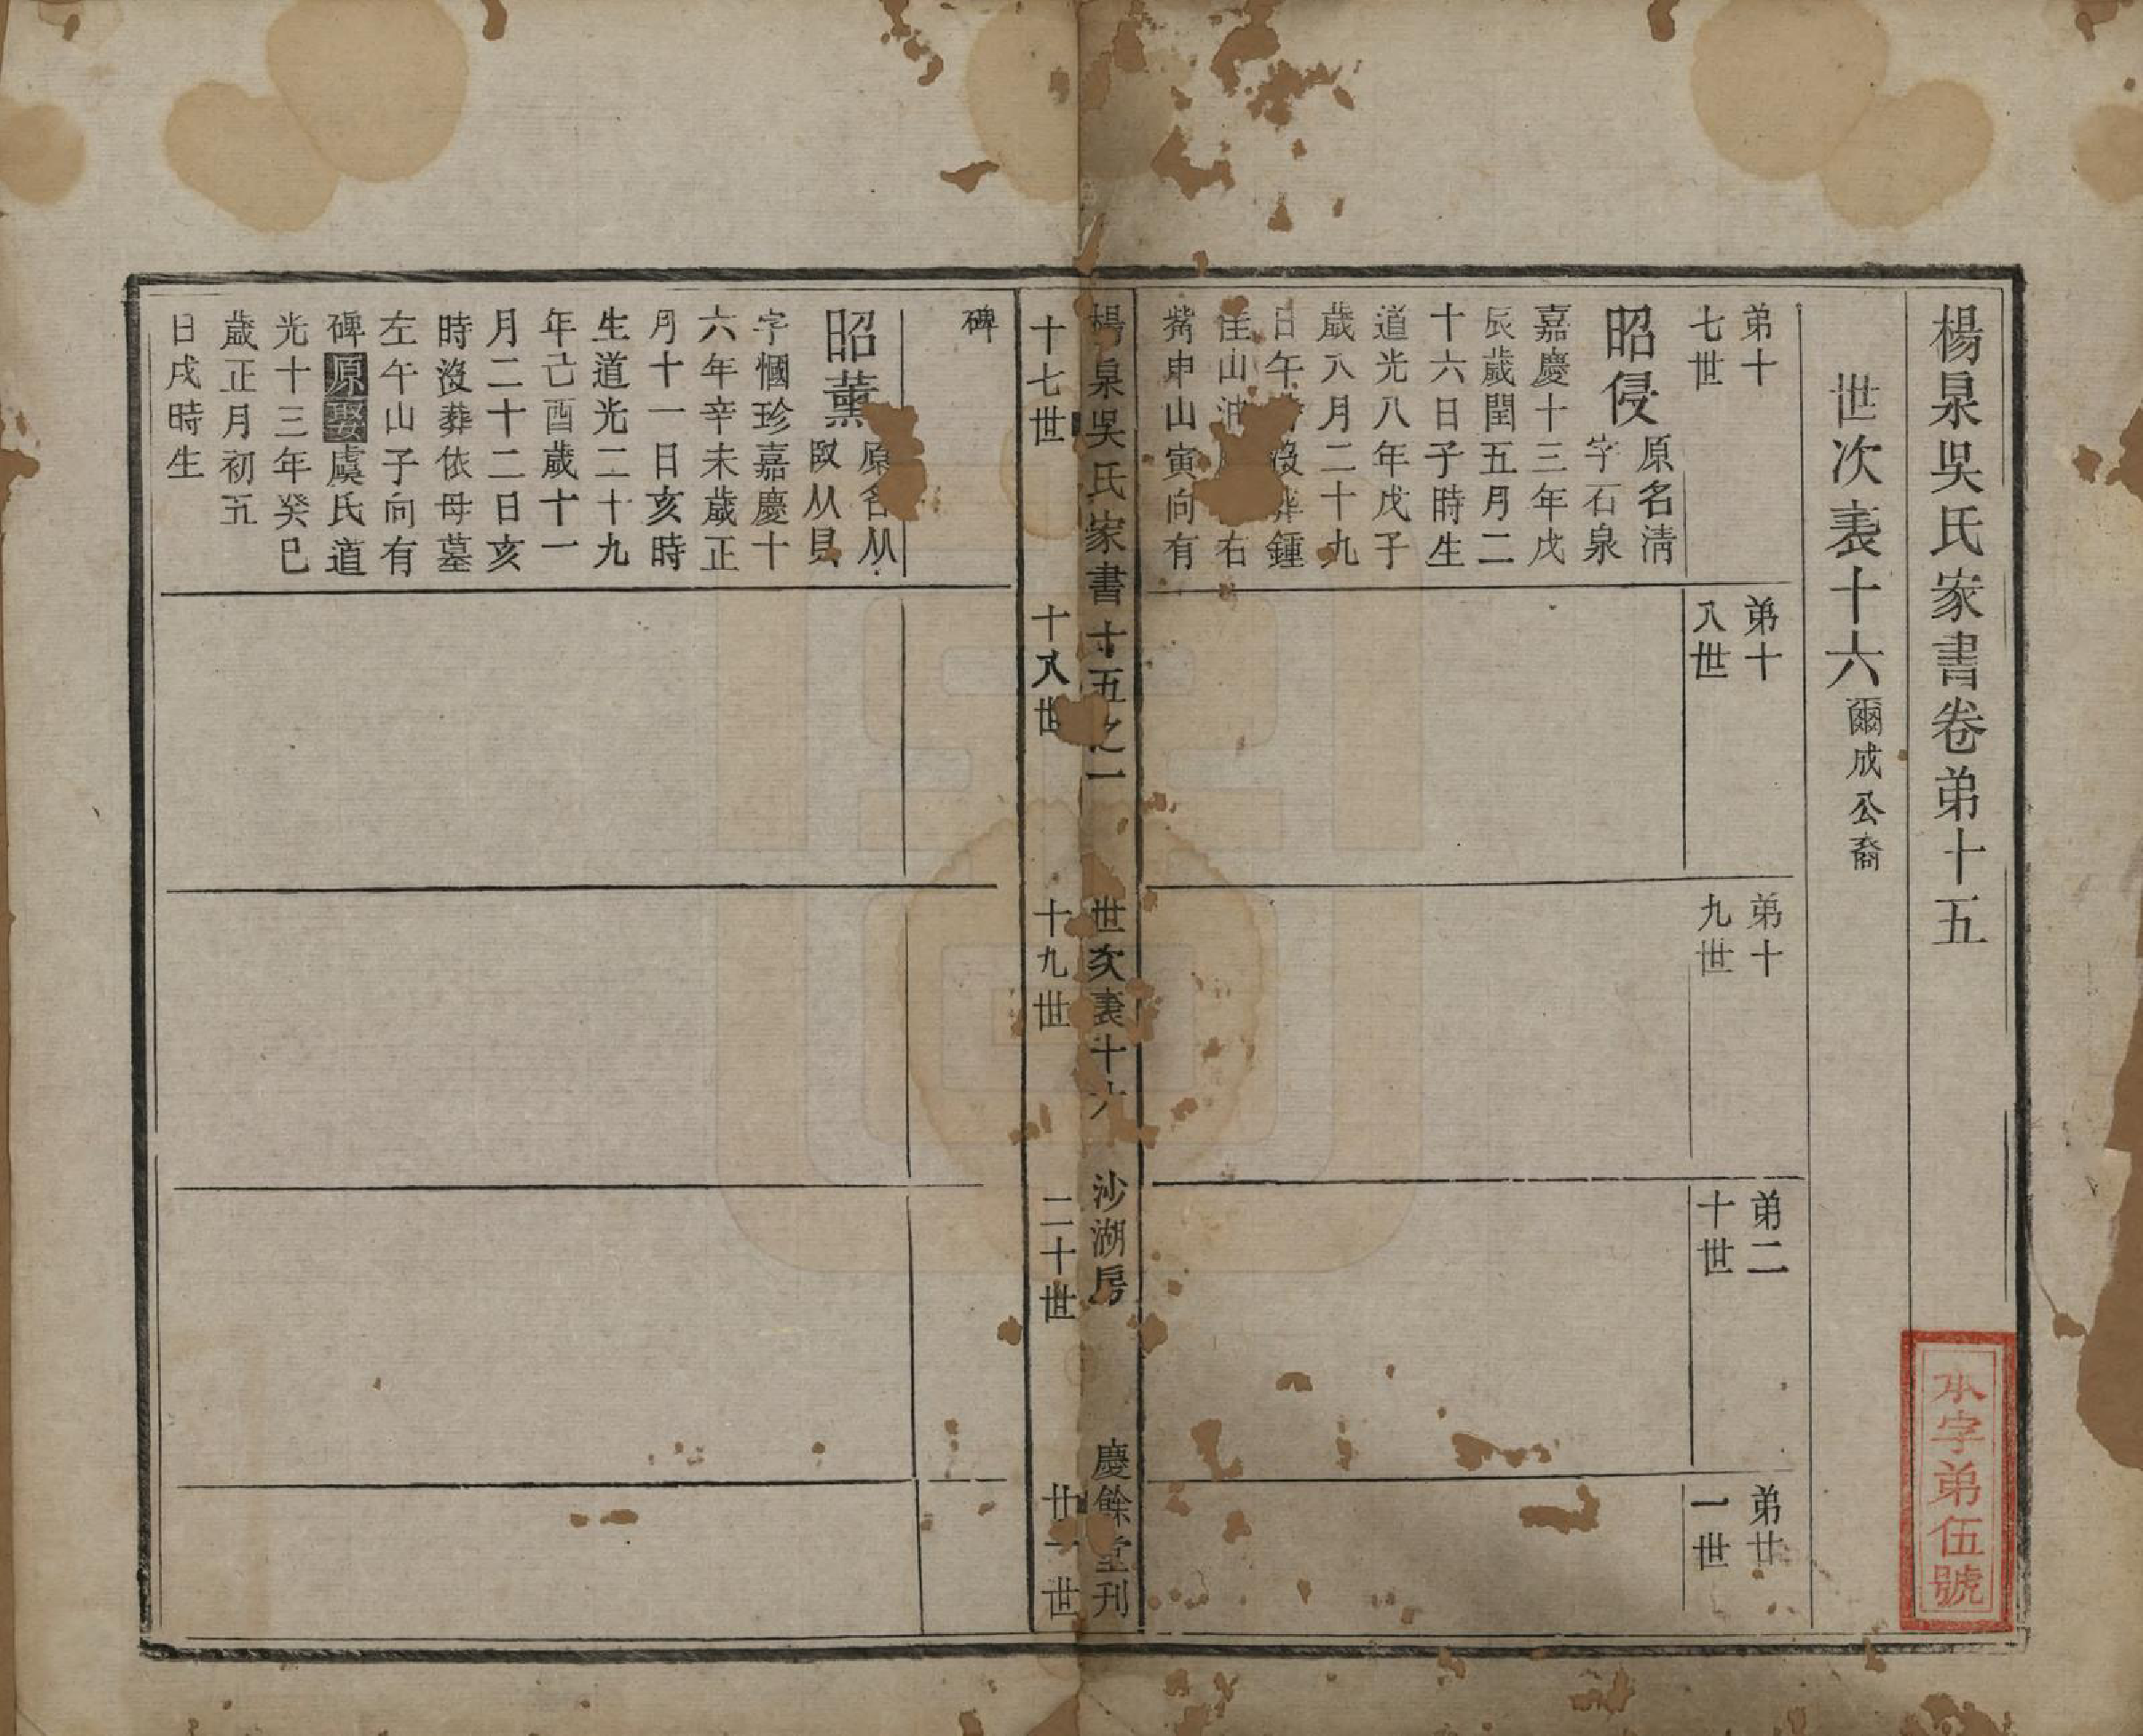 楊泉吳氏家書卷弟十五
世次表十六 爾成公裔
弟十七世
弟十八世
弟十九世
弟二十世
弟廿一世
昭侵 原名清
字石泉
嘉慶十三年戊
辰歲閏五月二
十六日子時生
道光八年戊子
歲八月二十九
日午 沒葬鍾
山 右
觜申山寅向有
楊泉吳氏家書十五之一 世次表十六 沙湖房 慶餘堂刊
十七世
十八世
十九世
二十世
廿一世
碑
昭薰 原名从
臤从貝
字慖珍嘉慶十
六年辛未歲正
月十一日亥時
生道光二十九
年己酉歲十一
月二十二日亥
時沒葬依母墓
左午山子向有
碑原娶虞氏道
光十三年癸巳
歲正月初五
日戌時生
木字弟伍號